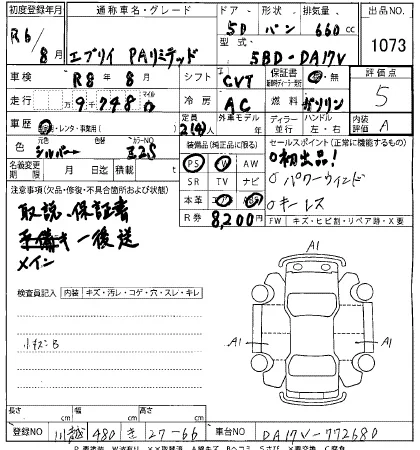 初度登録年月 通称車名・グレード ドア 形状 排気量 出品NO
R6/8月 エブリイ PAリミテッド 5D バン 660cc 1073
型式 5BD-DA17V
車検 R8年8月 シフト CVT 保証書 有・無 評価点 5
走行 9千748 マイル 冷房 AC 燃料 ガソリン
車歴 自・レンタ・事業用( ) 定員 2(4)人 外車モデル 年 ディーラー 並行 ハンドル 左・右 内装評価 A
色 元色 シルバー 色替 カラーNO Z2S 装備品(純正品に限る) セールスポイント(正常に機能するもの)
名義変更期限 月 日 車検証有効 月 日
PS PW AW ○初出品!
SR TV ナビ ○パワーウィンド
本革 エアB ABS ○キーレス
R券 8,200円 FW キズ・ヒビ割・リペア時・X要
注意事項(欠品・修復・不具合箇所および状態)
取説・保証書
予備キー後送
メイン
検査員記入 内装 キズ・汚レ・コゲ・穴・スレ・キレ
小キズB
A1
A1 A1
A1
長さ cm 幅 cm 高さ cm
登録NO 川越 480 き 27-66 車台NO DA17V-772680